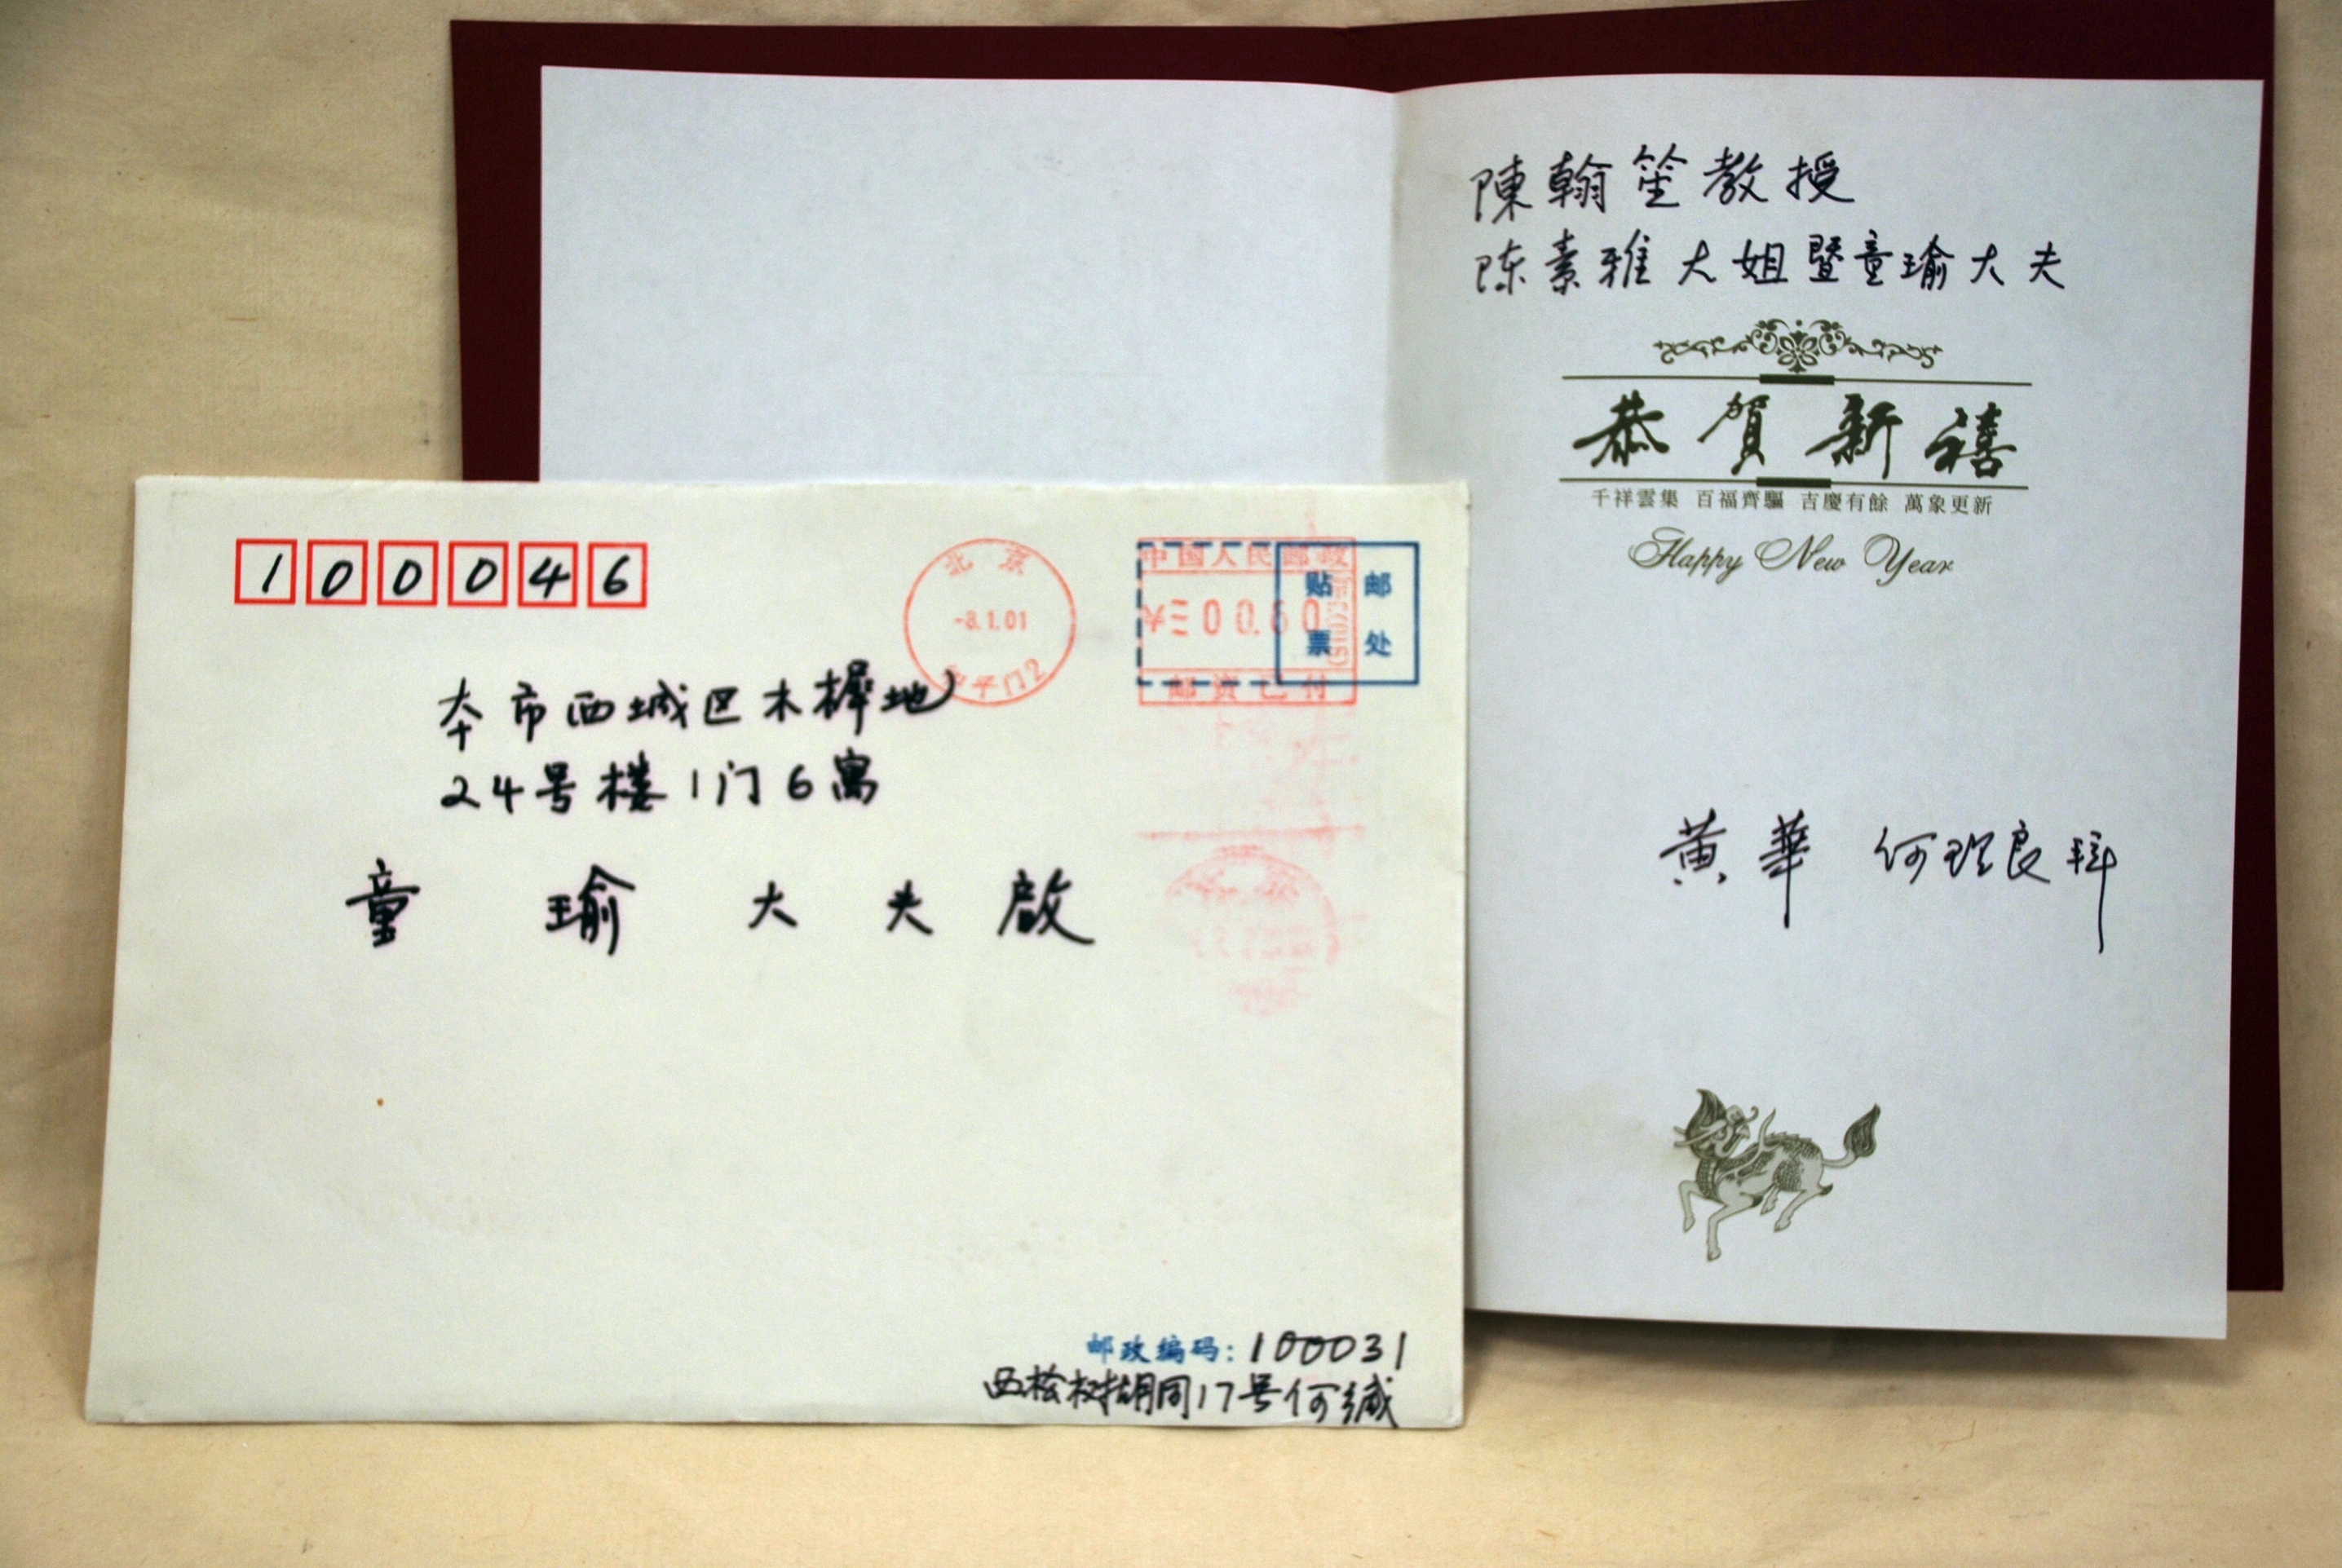 陳翰笙教授
陈素雅大姐暨童瑜大夫
恭賀新禧
千祥雲集 百福齊驅 吉慶有餘 萬象更新
Happy New Year
黄華 何理良拜
100046
北京
-8.1.01
和平门2
中国人民邮政
¥≡00.60
邮资已付
贴邮
票处
本市西城区木樨地
24号楼1门6寓
童瑜大夫啟
邮政编码:100031
西松树胡同17号何缄